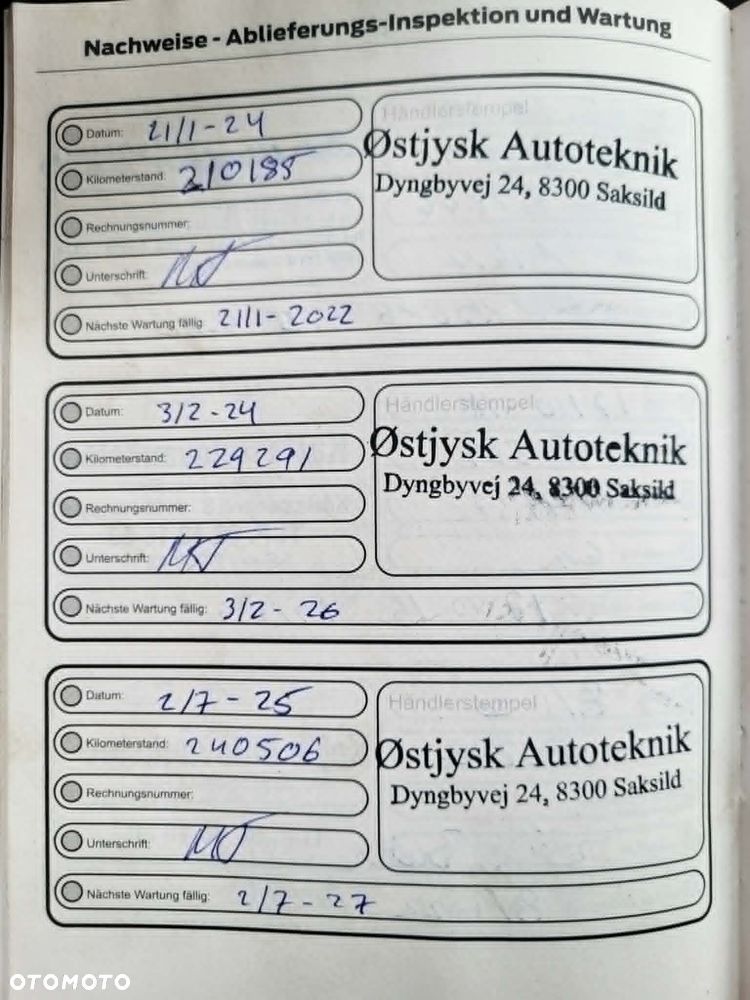 Nachweise - Ablieferungs-Inspektion und Wartung
Datum: 21/1-24
Kilometerstand: 210185
Rechnungsnummer:
Unterschrift:
Nächste Wartung fällig: 21/1-2022
Händlerstempel
Østjysk Autoteknik
Dyngbyvej 24, 8300 Saksild
Datum: 3/2-24
Kilometerstand: 229291
Rechnungsnummer:
Unterschrift:
Nächste Wartung fällig: 3/2-26
Händlerstempel
Østjysk Autoteknik
Dyngbyvej 24, 8300 Saksild
Datum: 2/7-25
Kilometerstand: 240506
Rechnungsnummer:
Unterschrift:
Nächste Wartung fällig: 2/7-27
Händlerstempel
Østjysk Autoteknik
Dyngbyvej 24, 8300 Saksild
OTOMOTO